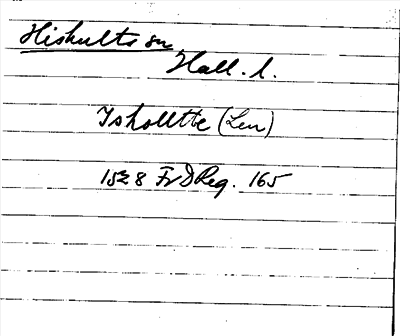 Hishults sn
Hall. l.
Isholltte (Len)
1528 Fr D Reg. 165